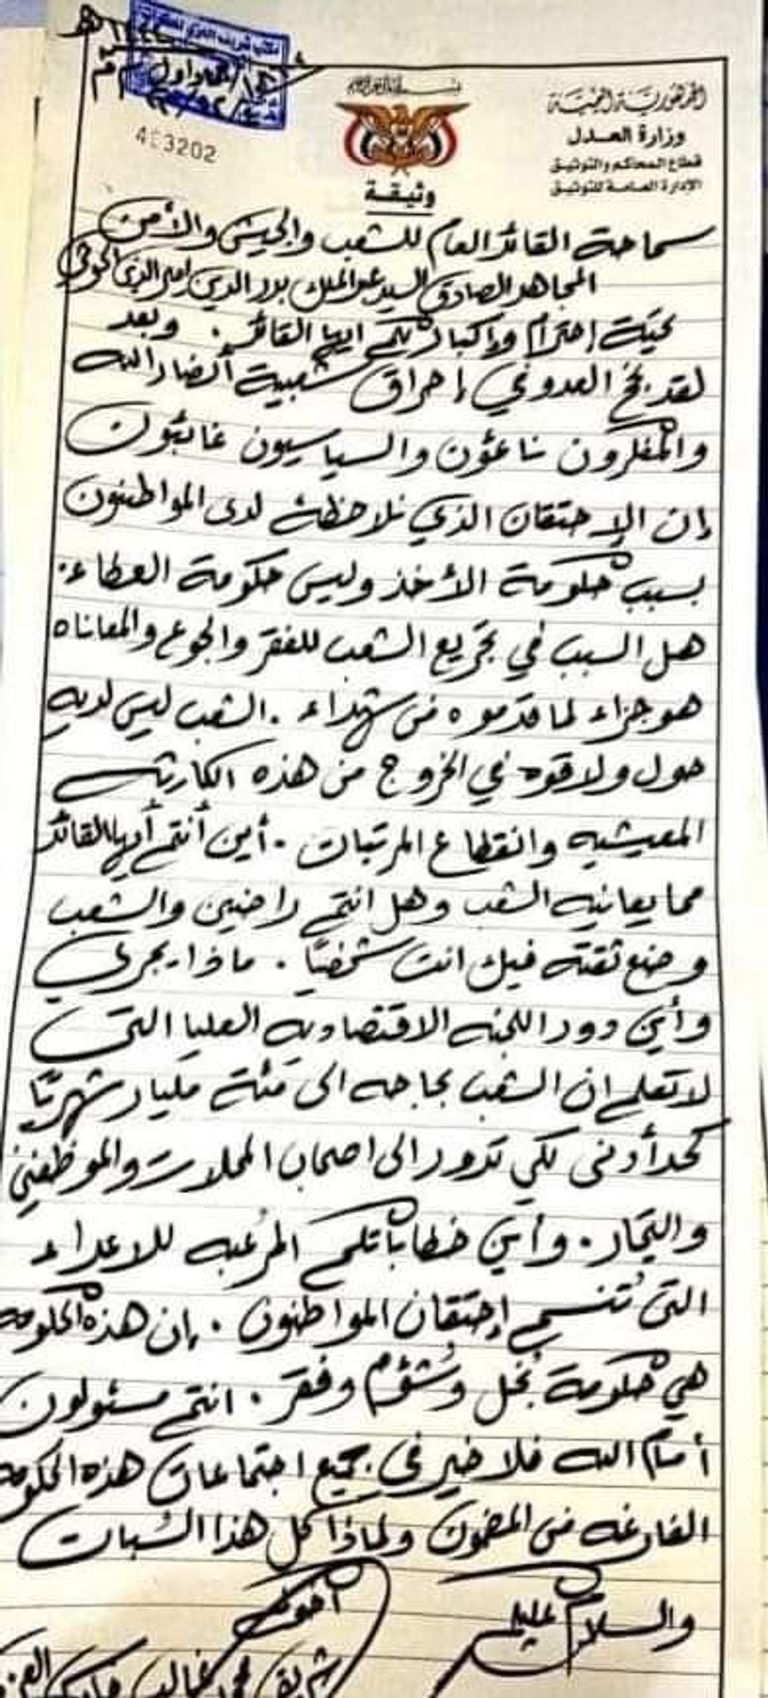 الجمهورية اليمنية
وزارة العدل
قطاع المحاكم والتوثيق
الإدارة العامة للتوثيق
بسم الله الرحمن الرحيم
وثيقة
3202
سماحة القائد العام للشعب والجيش والأمن
المجاهد الصادق السيد عبدالملك بدر الدين امير الدين الحوثي
تحية إحترام وإكبار لكم ايها القائد . وبعد
لقد نجح العدو في إحراق شعبية أنصار الله
والمفكرون نائمون والسياسيون غائبون
إن الإحتقان الذي نلاحظه لدى المواطنون
بسبب حكومة الأخذ وليس حكومة العطاء .
هل السبب في تجريع الشعب للفقر والجوع والمعاناه
هو جزاء لما قدموه من شهداء . الشعب ليس لديه
حول ولا قوه في الخروج من هذه الكارثه
المعيشيه وانقطاع المرتبات . أين أنتم أيها القائد
مما يعانيه الشعب وهل انتم راضين والشعب
وضع ثقته فيك انت شخصيًا . ماذا يجري
وأين دور اللجنه الاقتصاديه العليا التي
لا تعلم ان الشعب بحاجه الى مئة مليار شهريًا
كحد أدنى لكي تدور الى اصحاب المحلات والموظفين
والتجار . وأين خطاباتكم المرعبه للاعداء
التي تنسم إحتقان المواطنون . إن هذه الحكومه
هي حكومة بُخل وشُؤم وفقر . انتم مسئولون
أمام الله فلا خير في جميع اجتماعات هذه الحكومه
الفارغه من المضمون ولماذا كل هذا السُبات
والسلام عليكم
أخوكم